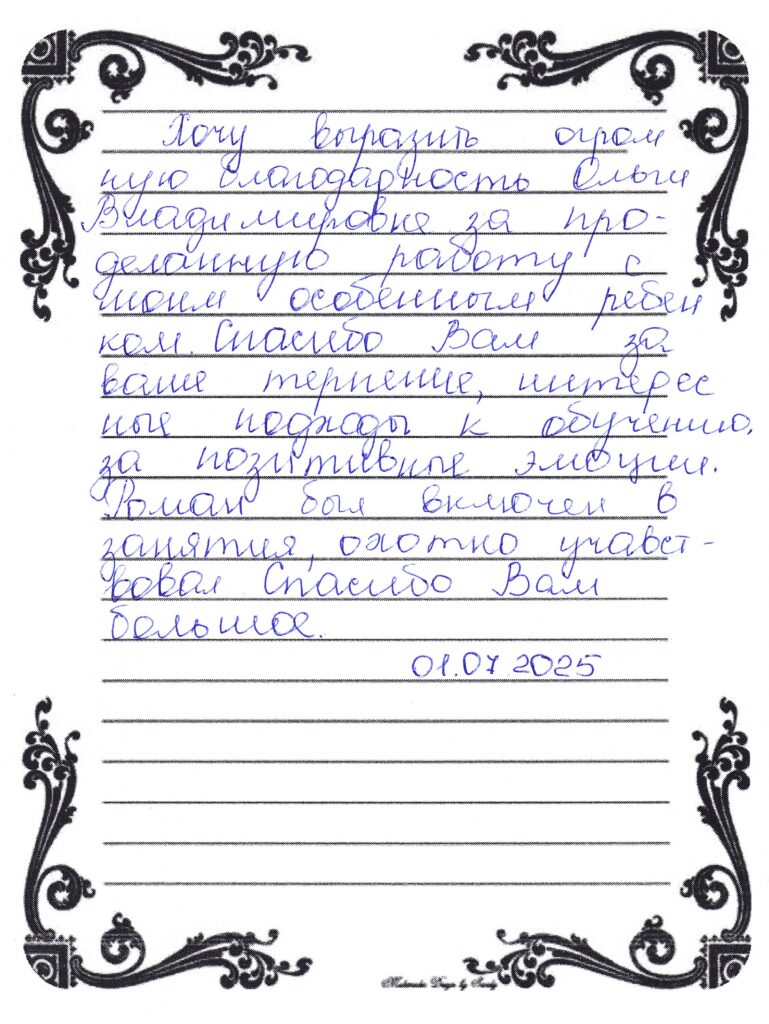 Хочу выразить огром
ную благодарность Ольги
Владимировне за про-
деланную работу с
моим особенным ребен
ком. Спасибо Вам за
ваше терпение, интерес
ные подходы к обучению,
за позитивные эмоции.
Роман был включен в
занятия, охотно учавст-
вовал Спасибо Вам
большое.
01.07.2025